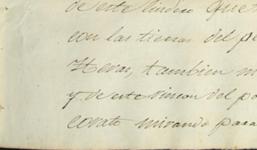 de este lindero que
con las tierras del
Heras, tambien
y de este rincon del
mirando para